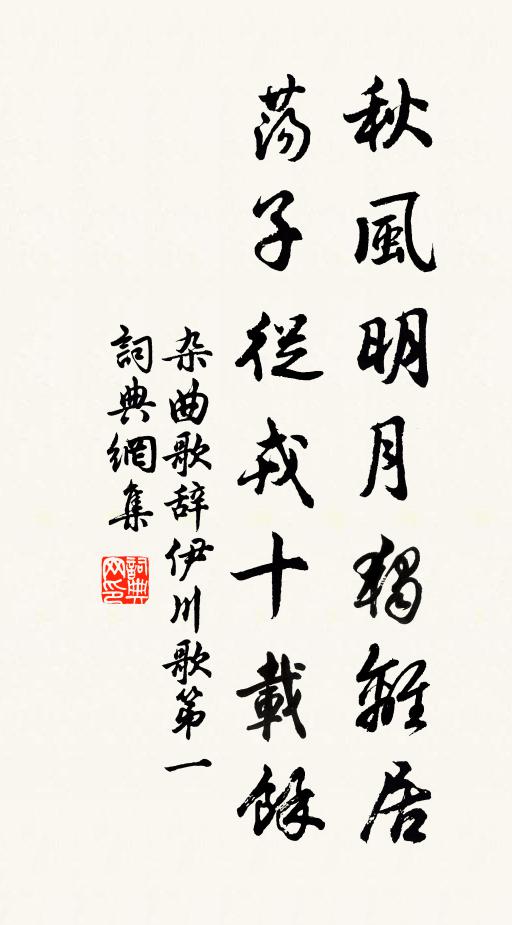 秋風明月獨離居
蕩子從戎十載餘
杂曲歌辞伊川歌第一
詞典網集
詞典网印